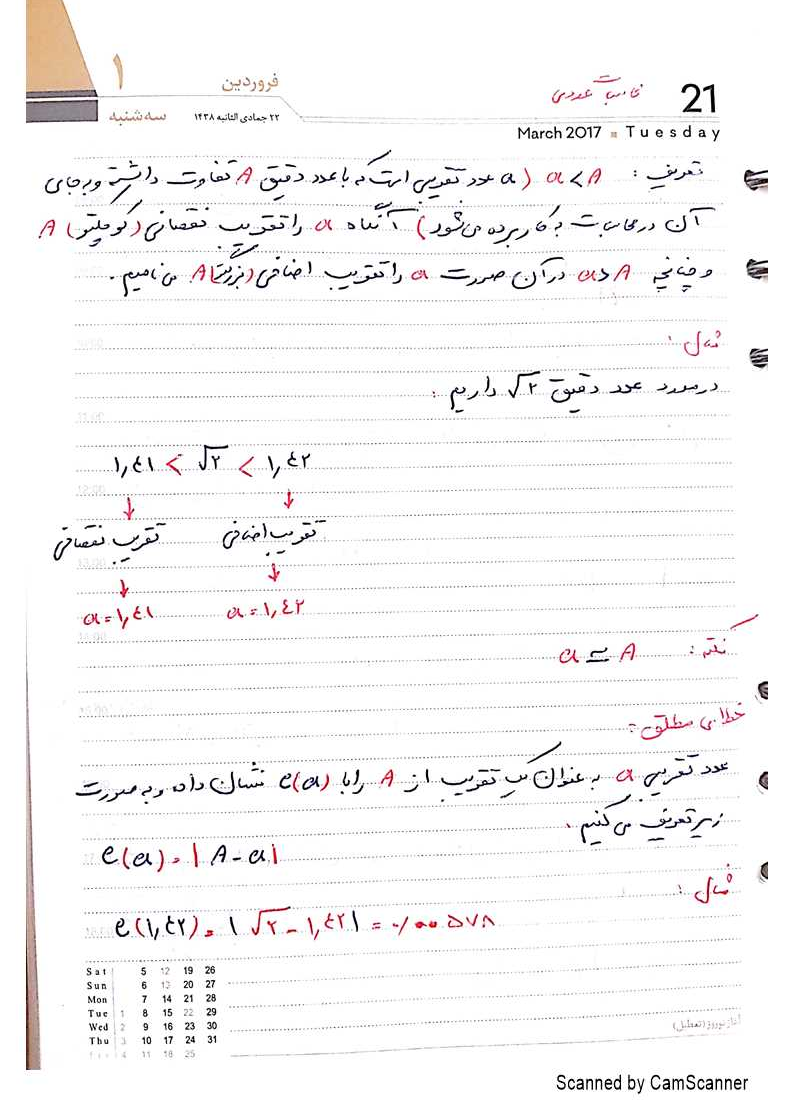 ۱
فروردین
سه شنبه
۲۲ جمادی الثانیه ۱۴۳۸
محاسبات عددی
21
March 2017 Tuesday
تعریف : a < A (a عدد تقریبی است که با عدد دقیق A تفاوت داشته و به جای
آن در محاسبات به کار برده می شود) آنگاه a را تقریب نقصانی (کوچکتر) A
و چنانچه a > A در آن صورت a را تقریب اضافی (بزرگتر) A می نامیم .
مثال :
در مورد عدد دقیق √۲ داریم :
۱,٤۱ < √۲ < ۱,٤۲
تقریب نقصانی تقریب اضافی
a = ۱,٤۱ a = ۱,٤۲
نکته : a ≃ A
خطای مطلق :
عدد تقریبی a به عنوان یک تقریب از A را با e(a) نشان داده و به صورت
زیر تعریف می کنیم .
e(a) = | A - a |
مثال :
e(۱,٤۲) = | √۲ - ۱,٤۲ | = ۰/۰۰۵۷۸
Sat 5 12 19 26
Sun 6 13 20 27
Mon 7 14 21 28
Tue 1 8 15 22 29
Wed 2 9 16 23 30
Thu 3 10 17 24 31
Fri 4 11 18 25
آغاز نوروز (تعطیل)
Scanned by CamScanner